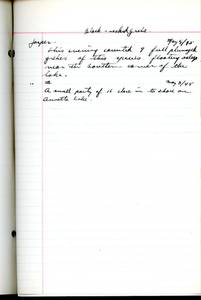 Black-necked Grebe
Jasper. May 9/45
This evening counted 9 full plumaged
grebes of this species floating
near the southern corner of the
lake.
" May 11/45
A small party of 11 close in to shore on
Annette Lake.